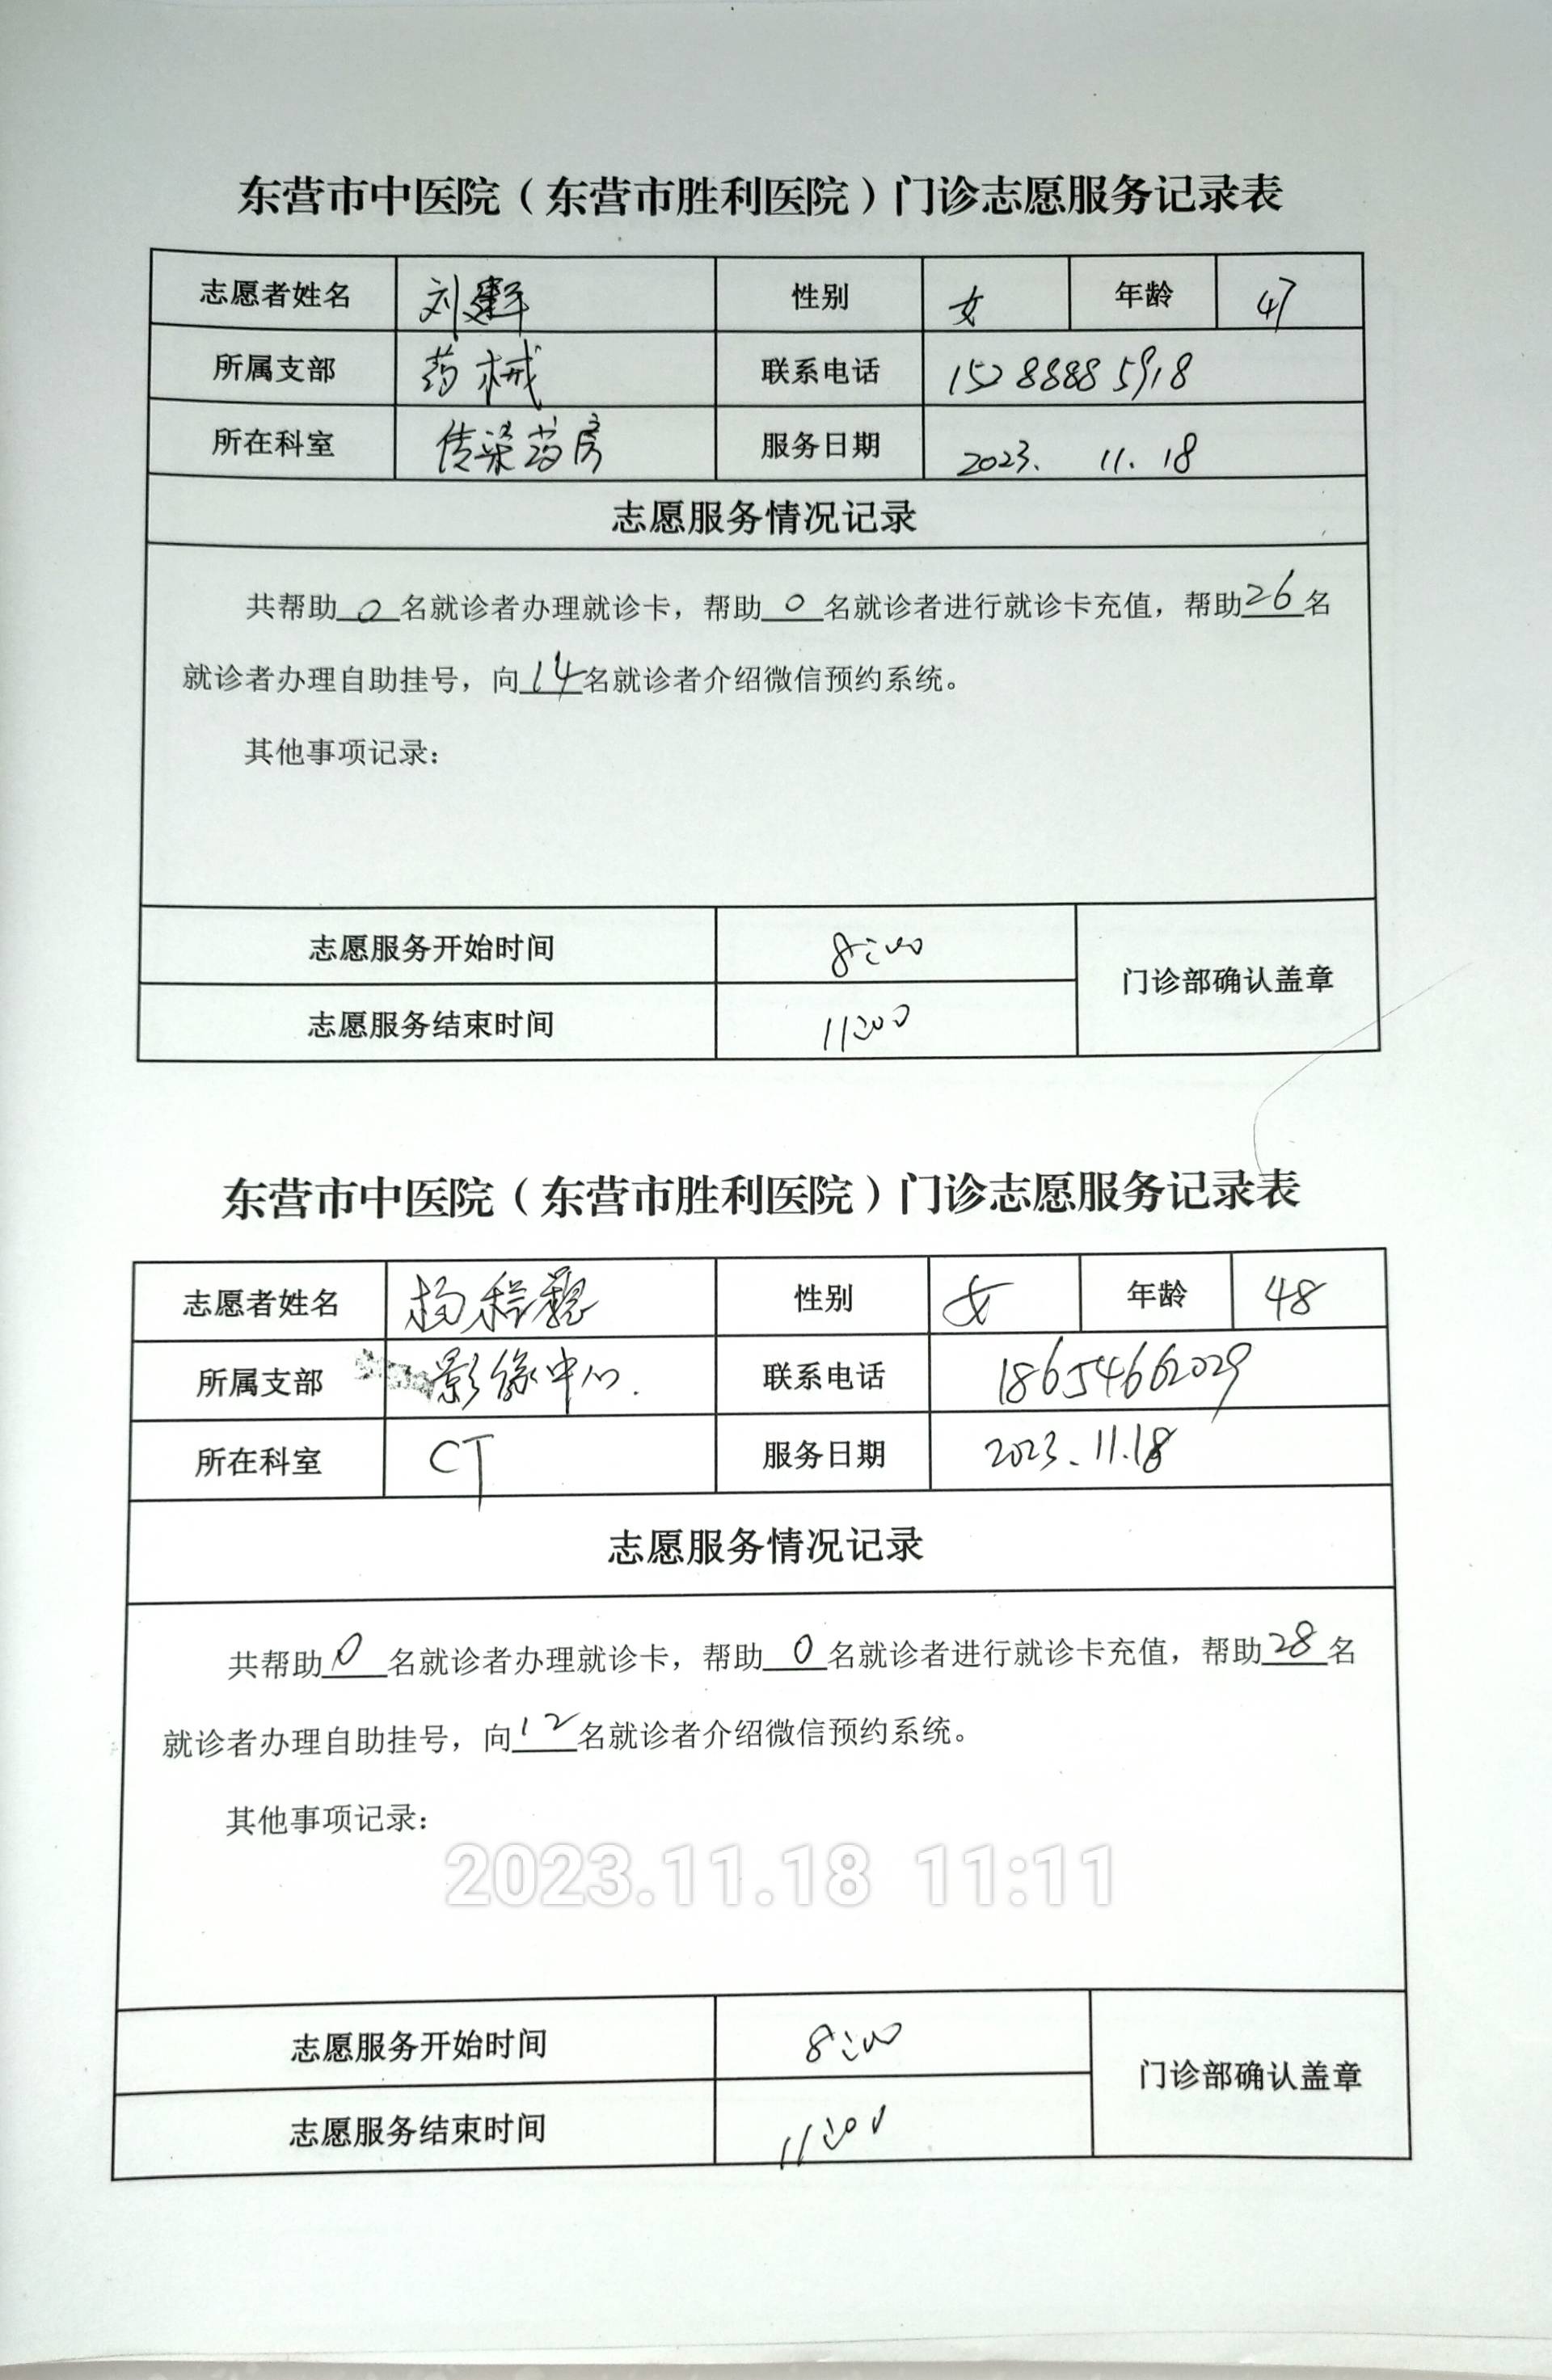 东营市中医院（东营市胜利医院）门诊志愿服务记录表
志愿者姓名 刘 性别 女 年龄 47
所属支部 药械 联系电话 15288885918
所在科室 传染药房 服务日期 2023. 11. 18
志愿服务情况记录
共帮助0名就诊者办理就诊卡，帮助0名就诊者进行就诊卡充值，帮助26名
就诊者办理自助挂号，向14名就诊者介绍微信预约系统。
其他事项记录：
志愿服务开始时间 8:00
门诊部确认盖章
志愿服务结束时间 11:00
东营市中医院（东营市胜利医院）门诊志愿服务记录表
志愿者姓名 杨 性别 女 年龄 48
所属支部 影像中心. 联系电话 18654662029
所在科室 CT 服务日期 2023.11.18
志愿服务情况记录
共帮助0名就诊者办理就诊卡，帮助0名就诊者进行就诊卡充值，帮助28名
就诊者办理自助挂号，向12名就诊者介绍微信预约系统。
其他事项记录：
2023.11.18 11:11
志愿服务开始时间 8:00
门诊部确认盖章
志愿服务结束时间 11:00